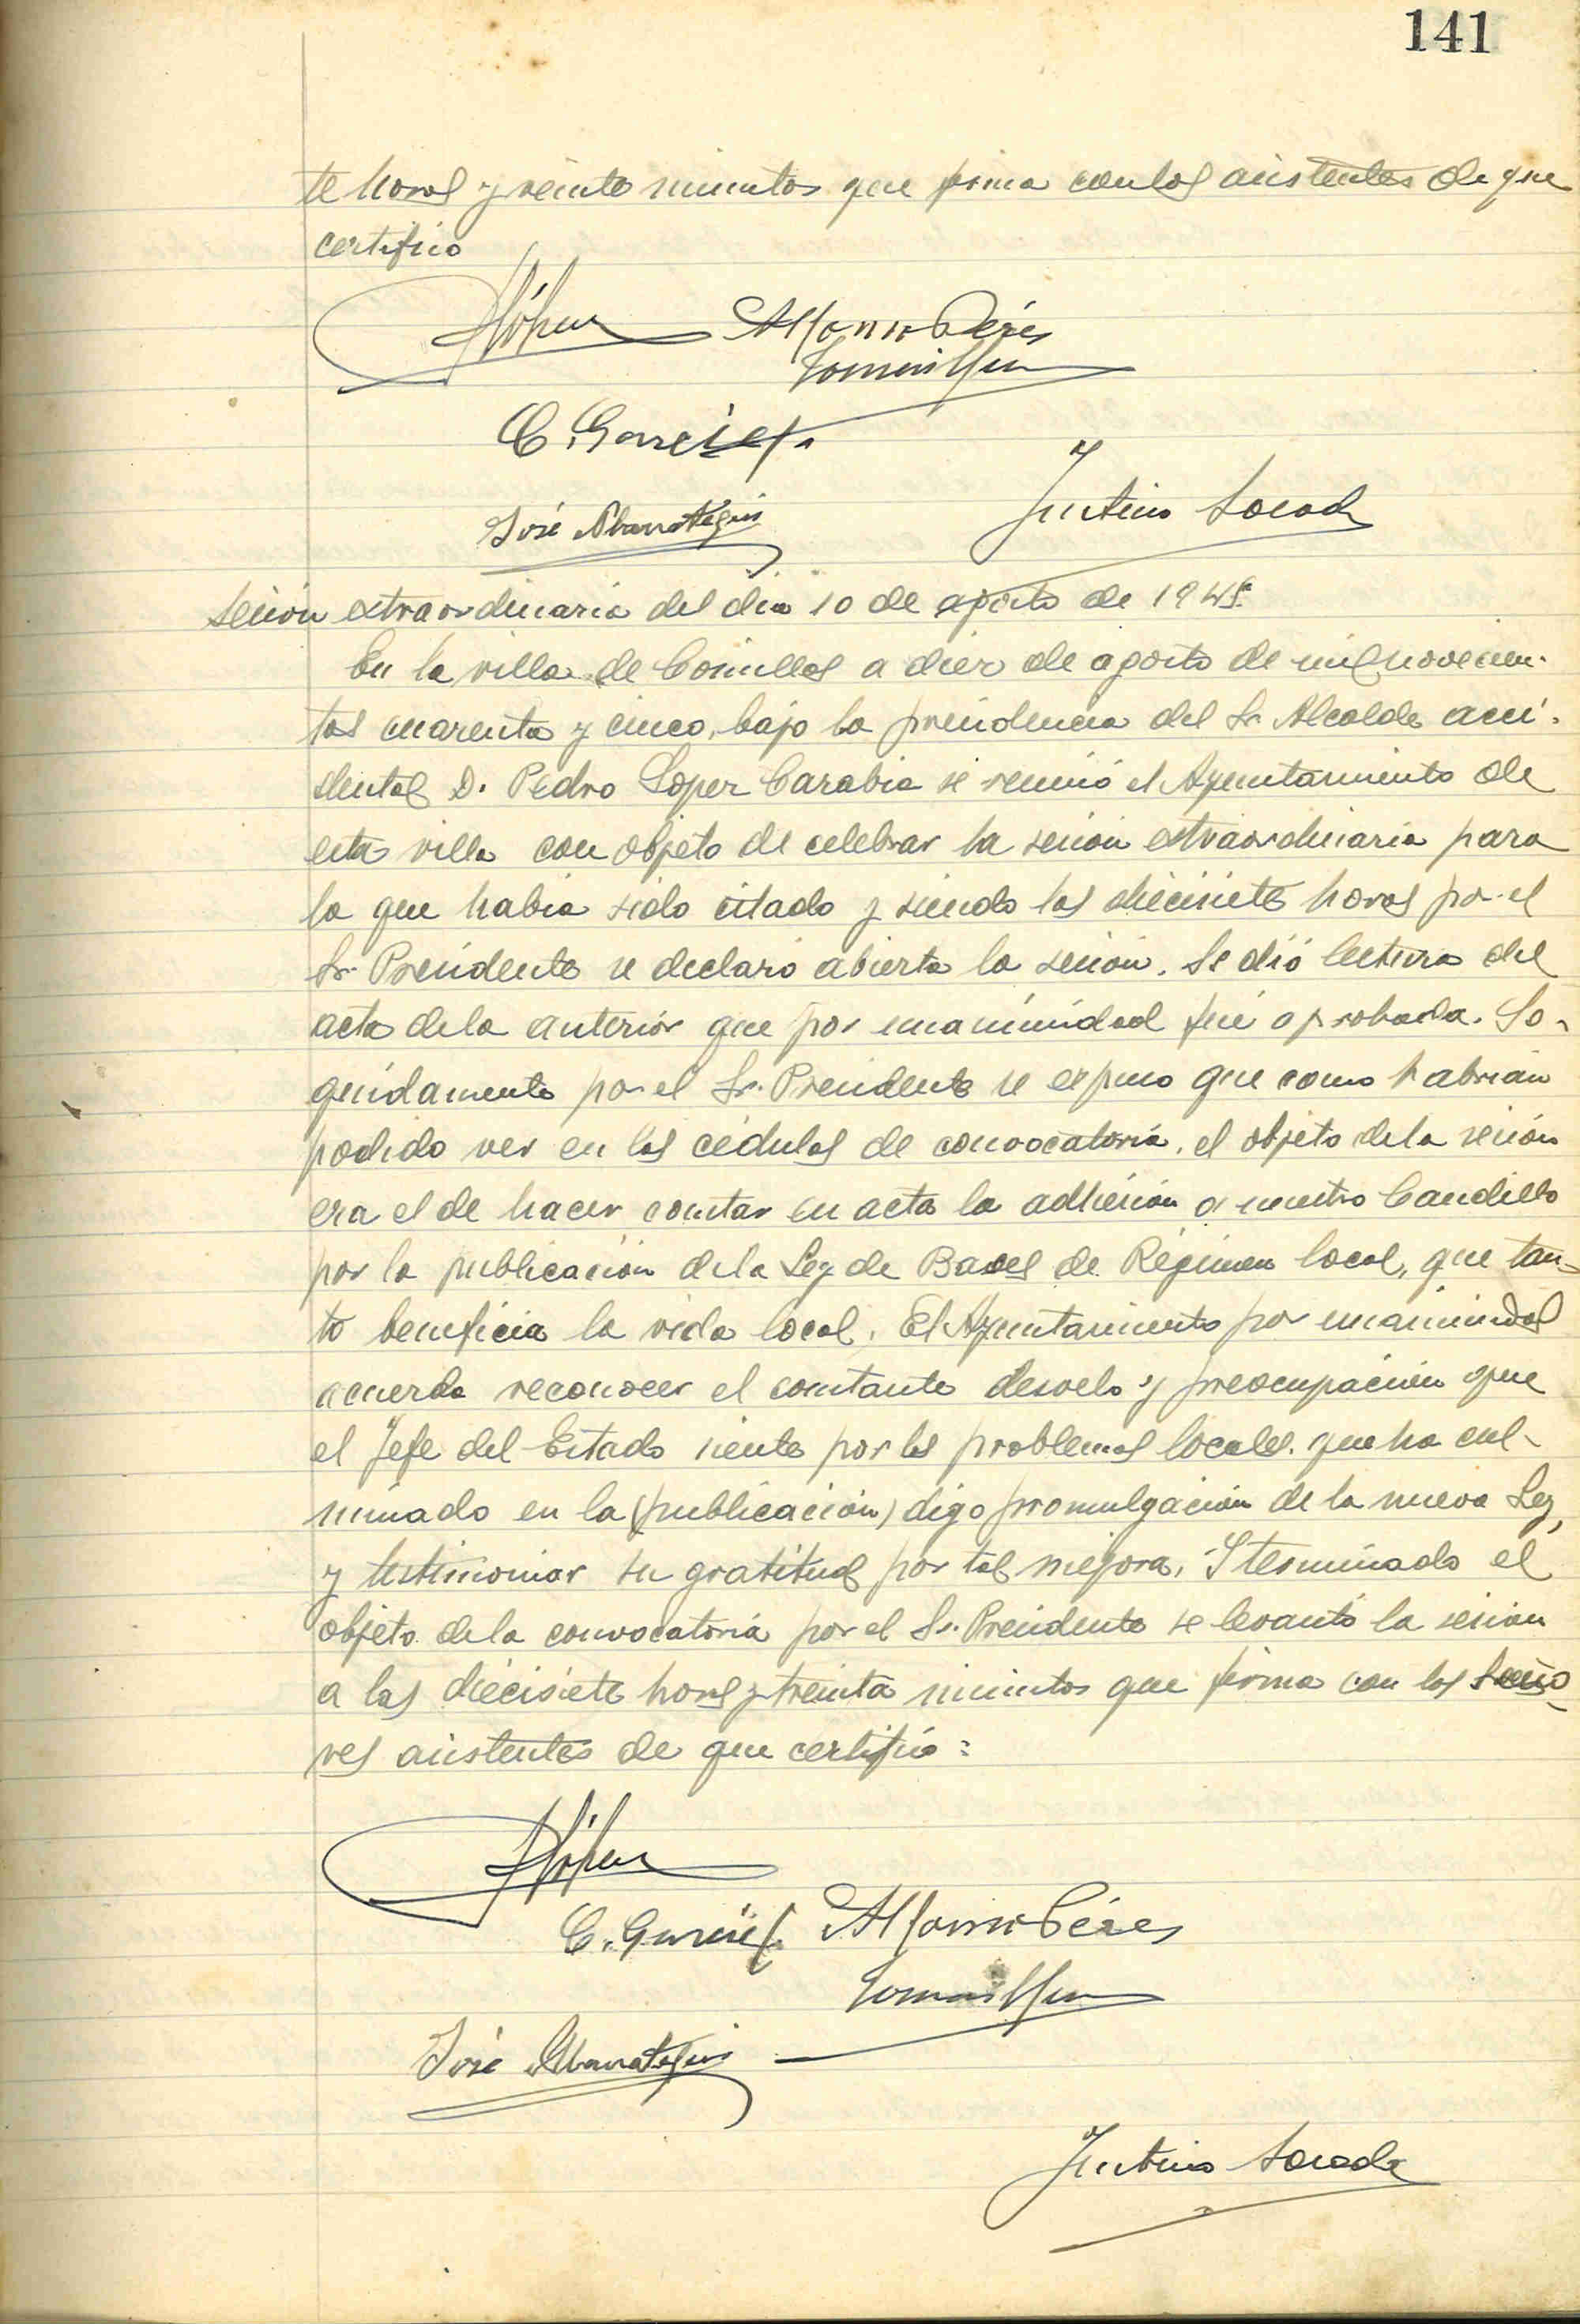 141
te horas y veinte minutos que firma con los asistentes de que
certifico
P López Alfonso Pérez
C. García
José Abarrategui
Justino
Sesión extraordinaria del dia 10 de agosto de 1945.
En la villa de Comillas a diez de agosto de mil novecien-
tos cuarenta y cinco, bajo la presidencia del Sr. Alcalde acci-
dental D. Pedro Lopez Carabia se reunió el Ayuntamiento de
esta villa con objeto de celebrar la sesión extraordinaria para
la que habia sido citado y siendo las diecisiete horas por el
Sr. Presidente se declaró abierta la sesión. Se dió lectura del
acta de la anterior que por unanimidad fué aprobada. Se-
guidamente por el Sr. Presidente se expuso que como habrian
podido ver en las cédulas de convocatoria, el objeto de la sesión
era el de hacer constar en acta la adhesión a nuestro Caudillo
por la publicación de la Ley de Bases de Régimen local, que tan-
to beneficia la vida local. El Ayuntamiento por unanimidad
acuerda reconocer el constante desvelo y preocupación que
el Jefe del Estado siente por los problemas locales que ha cul-
minado en la (publicación) digo promulgación de la nueva Ley,
y testimoniar su gratitud por tal mejora. Y terminado el
objeto de la convocatoria por el Sr. Presidente se levantó la sesión
a las diecisiete horas y treinta minutos que firma con los seño-
res asistentes de que certifico:
P López
C. García Alfonso Pérez
José Abarrategui
Justino